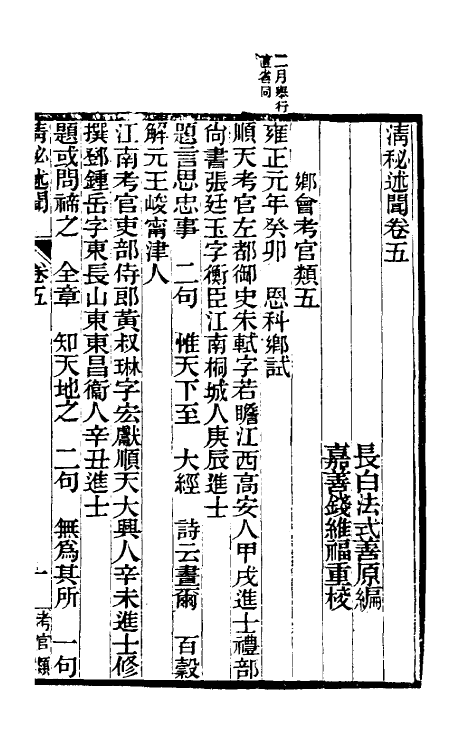 淸秘述聞卷五
長白法式善原編
嘉善錢維福重校
鄉會考官類五
二月舉行
直省同
雍正元年癸卯 恩科鄉試
順天考官左都御史朱軾字若瞻江西高安人甲戌進士禮部
尙書張廷玉字衡臣江南桐城人庚辰進士
題言思忠事 二句 惟天下至 大經 詩云晝爾 百穀
解元王峻甯津人
江南考官吏部侍郎黃叔琳字宏獻順天大興人辛未進士修
撰鄧鍾岳字東長山東東昌衞人辛丑進士
題或問禘之 全章 知天地之 二句 無爲其所 一句
淸秘述聞 卷五 一 考官類